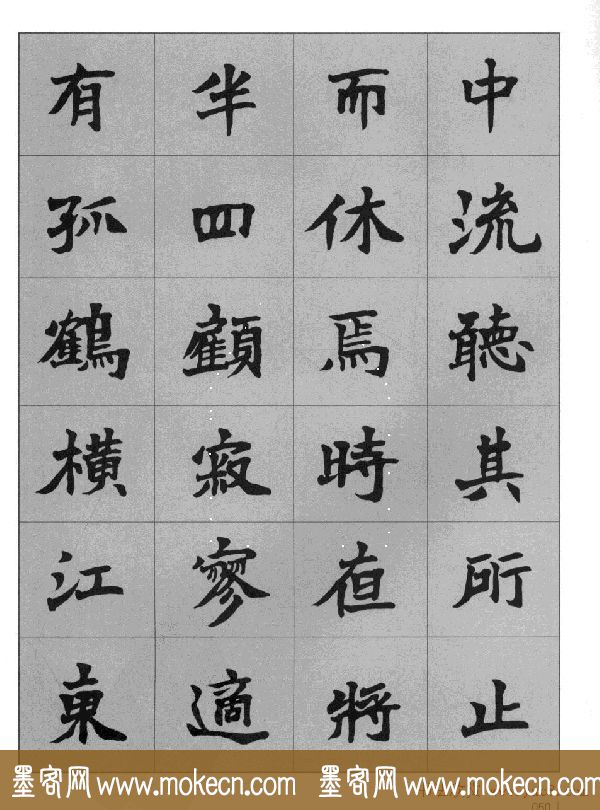 中流聽其所止
而休焉時夜將
半四顧寂寥適
有孤鶴橫江東
墨客网 www.mokecn.com 墨客网 www.mokecn.com
050